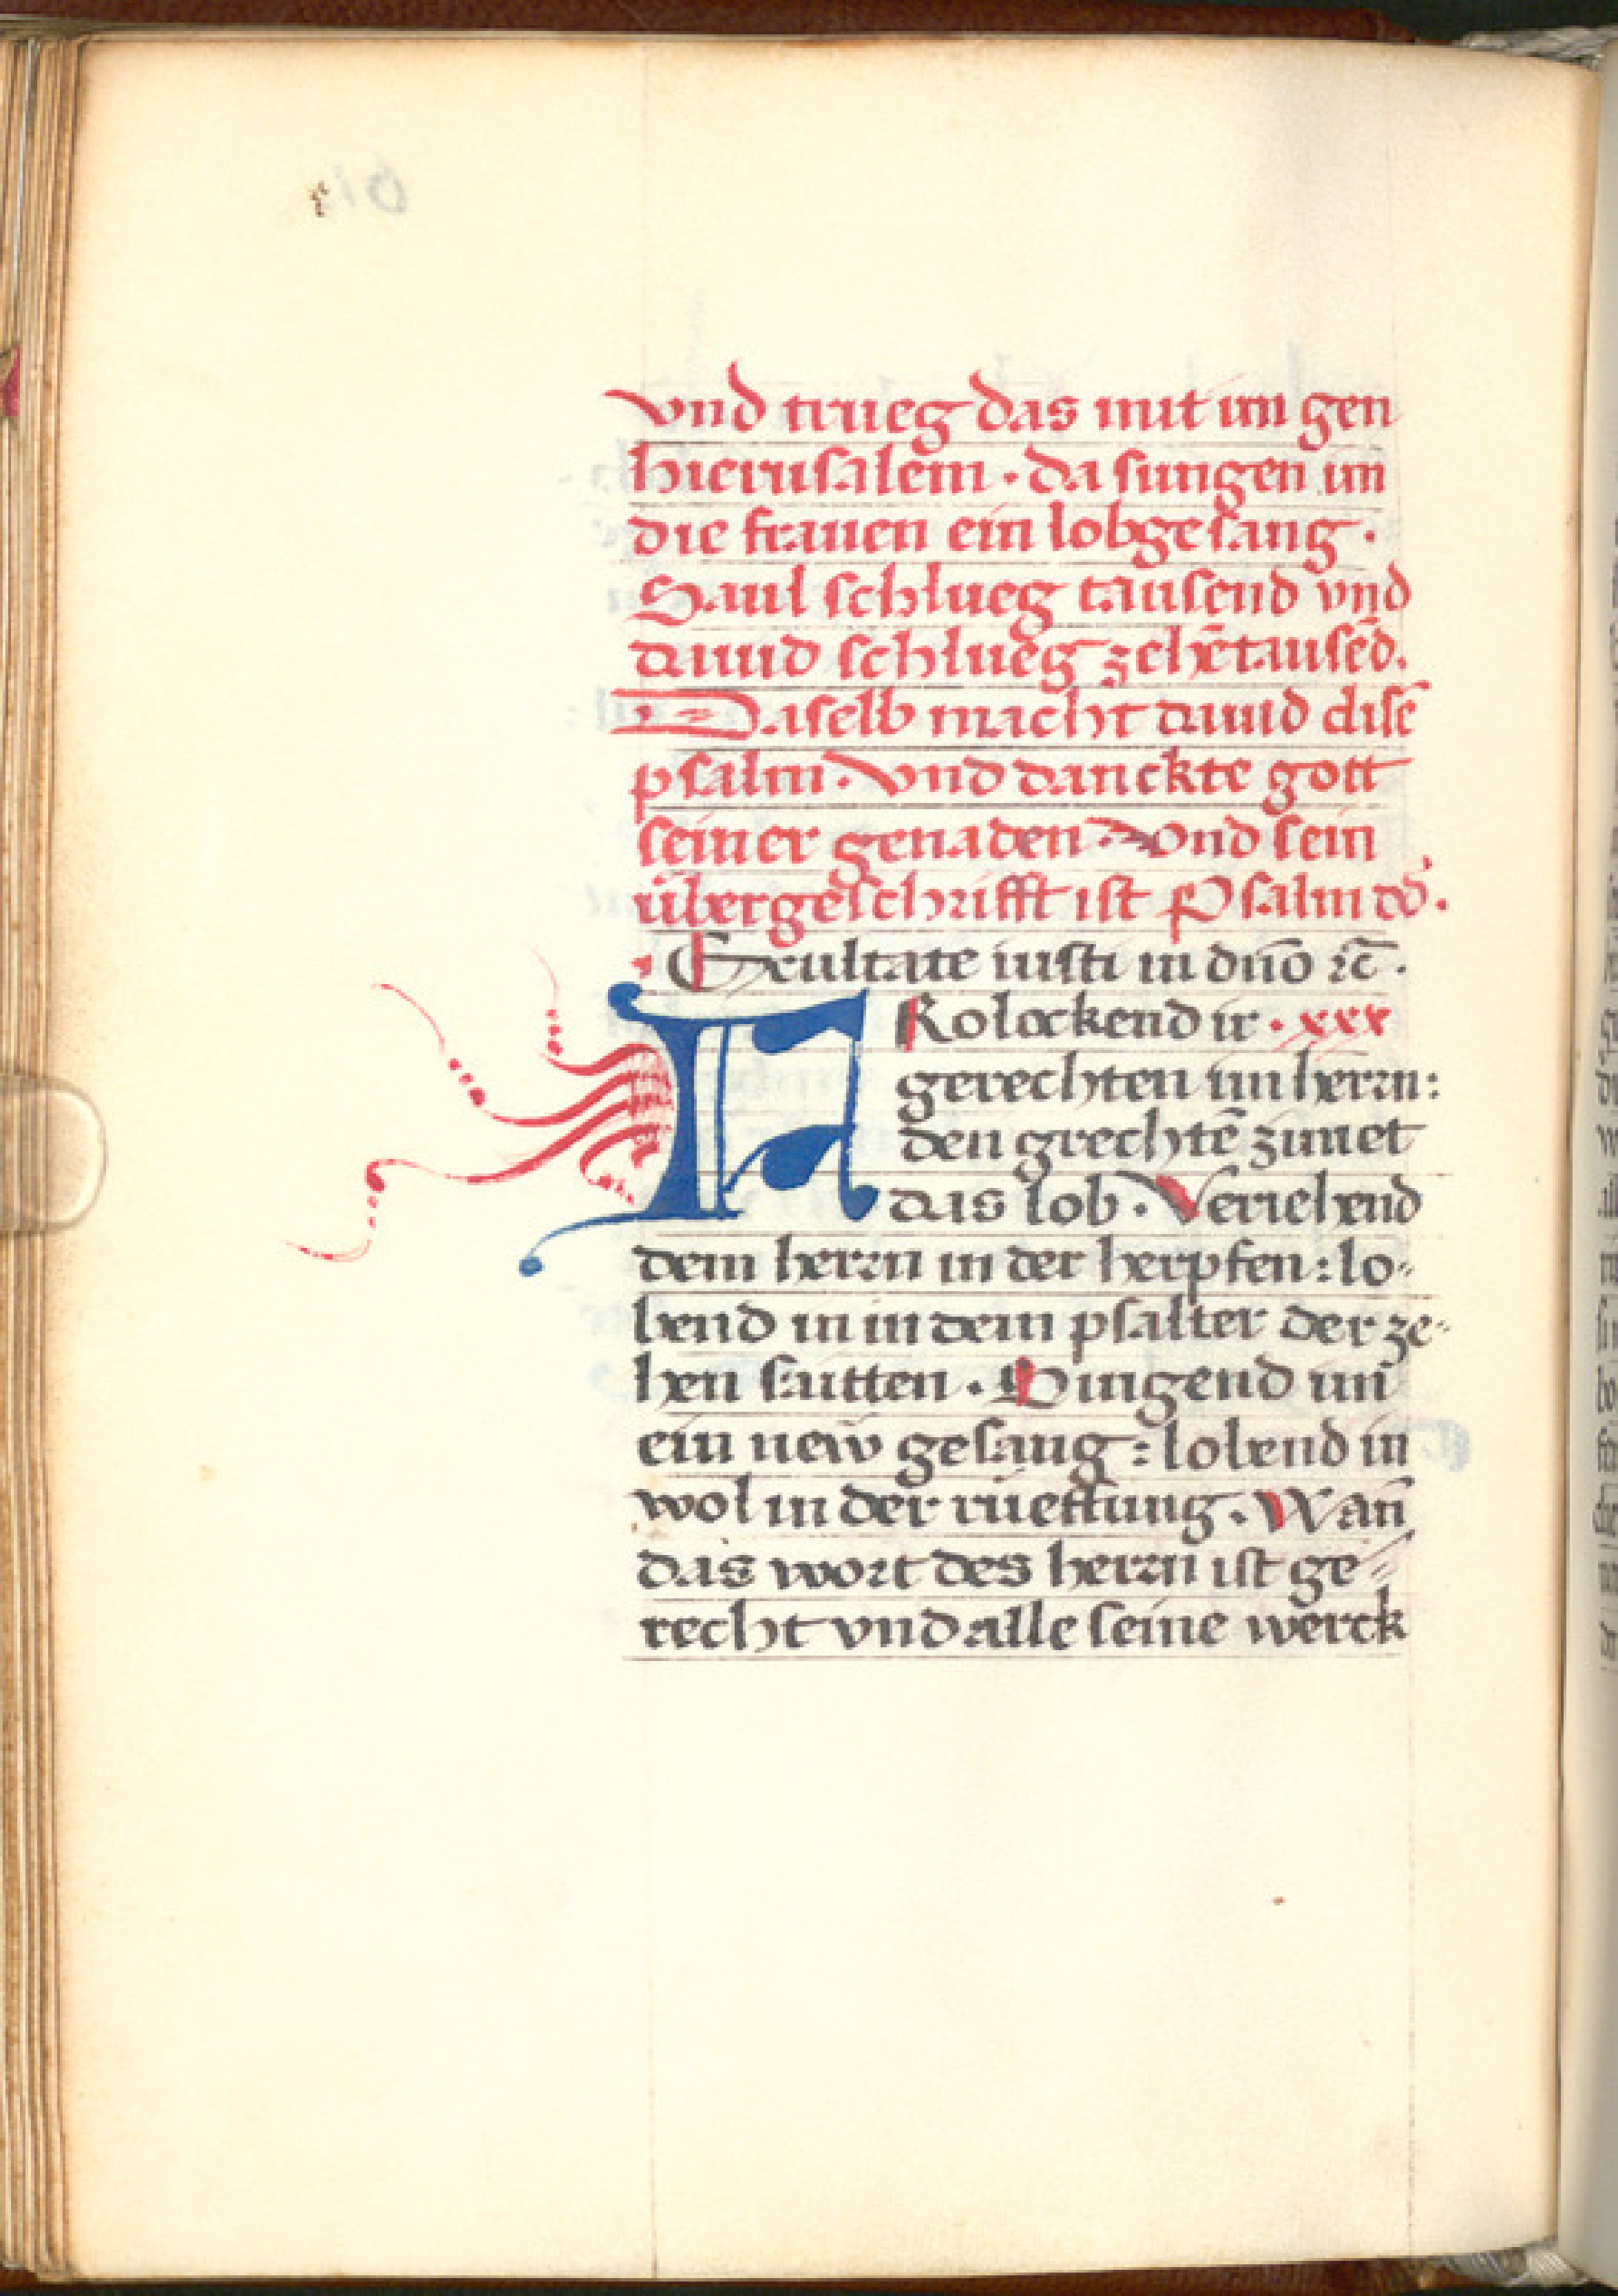 vnd trueg das mit im gen
hierusalem · da sungen im
die frauen ein lobgesang ·
Saul schlueg tausend vnd
dauid schlueg zehētausēd.
Daselb macht dauid disē
psalm · vnd danckte gott
seiner genaden · vnd sein
übergeschrifft ist Psalm dd̄ ·
Exultate iusti in dn̄o ⁊c̄ ·
FRolockend ir · xxx
gerechten im herrn:
den grechtē zimet
das lob · Veriehend
dem herrn in der herpfen: lo-
bend in in dem psalter der ze-
hen saitten · Singend im
ein new gesang: lobend in
wol in der rüeffung · Wan̄
das wort des herrn ist ge-
recht vnd alle seine werck